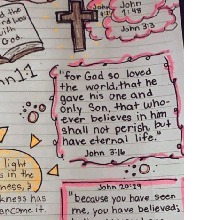 d the
nd was
with
God.
John
John
1:48
John 3:3
hn 1:1
"For God so loved
the world, that he
gave his one and
only Son, that who-
ever believes in him
shall not perish but
have eternal life."
John 3:16
light
s in the
ness, &
kness has
ercome it.
John 20:29
"because you have seen
me, you have believed;